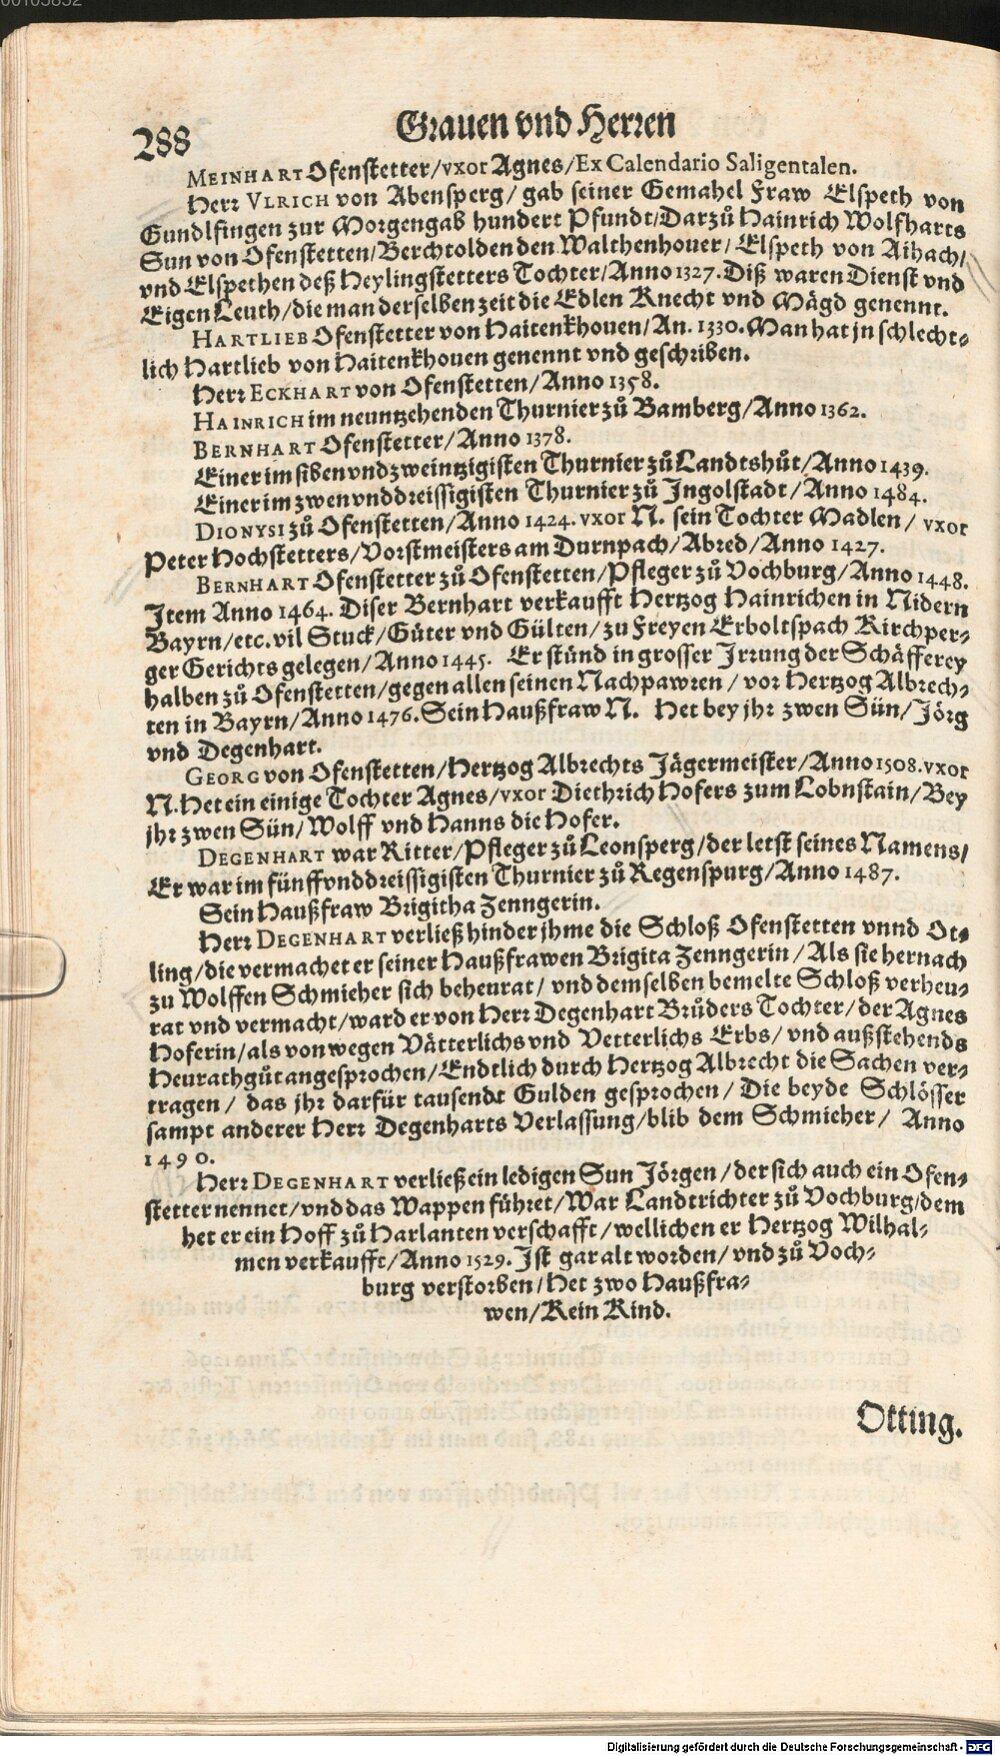 288
Grauen vnd Herren
MEINHART Ofenstetter/vxor Agnes/Ex Calendario Saligentalen.
Herr VLRICH von Abensperg/ gab seiner Gemahel Fraw Elspeth von
Gundlfingen zur Morgengab hundert Pfundt/Darzů Hainrich Wolfharts
Sun von Ofenstetten/Berchtolden den Walthenhouer/ Elspeth von Aihach/
vnd Elspethen deß Heylingstetters Tochter/Anno 1327. Diß waren Dienst vnd
Eigen Leuth/die man derselben zeit die Edlen Knecht vnd Mägd genennt.
HARTLIEB Ofenstetter von Haitenkhouen/An. 1330. Man hat jn schlecht-
lich Hartlieb von Haitenkhouen genennt vnd geschriben.
Herr ECKHART von Ofenstetten/Anno 1358.
HAINRICH im neuntzehenden Thurnier zů Bamberg/Anno 1362.
BERNHART Ofenstetter/Anno 1378.
Einer im siben vnd zweintzigisten Thurnier zů Landtshůt/Anno 1439.
Einer im zwen vnd dreissigisten Thurnier zů Ingolstadt/Anno 1484.
DIONYSI zů Ofenstetten/Anno 1424. vxor N. sein Tochter Madlen/ vxor
Peter Hochstetters/Vorstmeisters am Durnpach/Abred/Anno 1427.
BERNHART Ofenstetter zů Ofenstetten/Pfleger zů Vochburg/Anno 1448.
Item Anno 1464. Diser Bernhart verkaufft Hertzog Hainrichen in Nidern
Bayrn/etc. vil Stuck/Güter vnd Gülten/zu Freyen Erboltspach Kirchper-
ger Gerichts gelegen/Anno 1445. Er stůnd in grosser Irrung der Schäfferey
halben zů Ofenstetten/gegen allen seinen Nachpawren/ vor Hertzog Albrech-
ten in Bayrn/Anno 1476. Sein Haußfraw N. Het bey jhr zwen Sün/Jörg
vnd Degenhart.
GEORG von Ofenstetten/Hertzog Albrechts Jägermeister/Anno 1508. vxor
N. Het ein einige Tochter Agnes/vxor Diethrich Hofers zum Lobnstain/Bey
jhr zwen Sün/Wolff vnd Hanns die Hofer.
DEGENHART war Ritter/Pfleger zů Leonsperg/der letst seines Namens/
Er war im fünff vnd dreissigisten Thurnier zů Regenspurg/Anno 1487.
Sein Haußfraw Brigitha Zenngerin.
Herr DEGENHART verließ hinder jhme die Schloß Ofenstetten vnnd Ot-
ling/die vermachet er seiner Haußfrawen Brigita Zenngerin/Als sie hernach
zu Wolffen Schmieher sich beheurat/ vnd demselben bemelte Schloß verheu-
rat vnd vermacht/ward er von Herr Degenhart Brůders Tochter/der Agnes
Hoferin/als von wegen Vätterlichs vnd Vetterlichs Erbs/ vnd außstehends
Heurathgůt angesprochen/Endtlich durch Hertzog Albrecht die Sachen ver-
tragen/ das jhr darfür tausendt Gulden gesprochen/ Die beyde Schlösser
sampt anderer Herr Degenharts Verlassung/blib dem Schmieher/ Anno
1490.
Herr DEGENHART verließ ein ledigen Sun Jörgen/der sich auch ein Ofen-
stetter nennet/vnd das Wappen führet/War Landtrichter zů Vochburg/dem
het er ein Hoff zů Harlanten verschafft/wellichen er Hertzog Wilhal-
men verkaufft/Anno 1529. Ist gar alt worden/vnd zů Voch-
burg verstorben/Het zwo Haußfra-
wen/Kein Kind.
Otting.
Digitalisierung gefördert durch die Deutsche Forschungsgemeinschaft - DFG